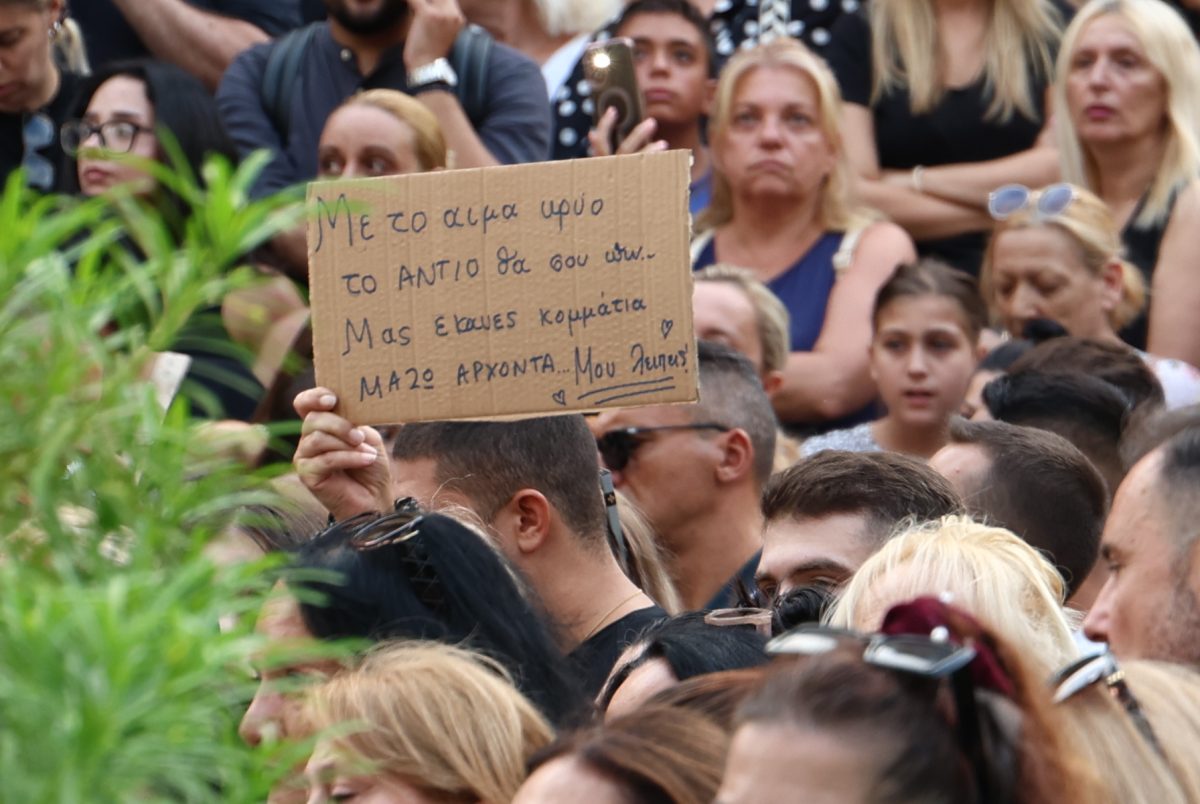 Με το αιμα κρύο
το ΑΝΤΙΟ θα σου πω..
Μας έκανες κομμάτια
ΜΑΖΩ ΑΡΧΟΝΤΑ... Μου λειπεις